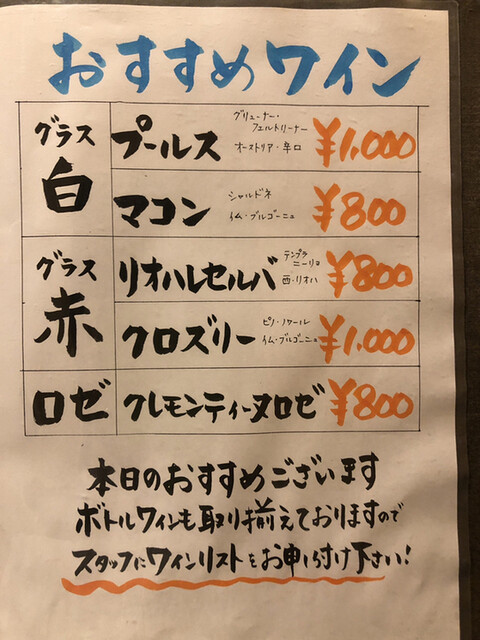 おすすめワイン
グラス
白
プールス
グリューナー・
フェルトリーナー
オーストリア・辛口
¥1,000
マコン
シャルドネ
仏・ブルゴーニュ
¥800
グラス
赤
リオハレセルバ
テンプラ
ニーリョ
西・リオハ
¥800
クロズリー
ピノ・ノワール
仏・ブルゴーニュ
¥1,000
ロゼ
クレモンティーヌロゼ
¥800
本日のおすすめございます
ボトルワインも取り揃えておりますので
スタッフにワインリストをお申し付け下さい!